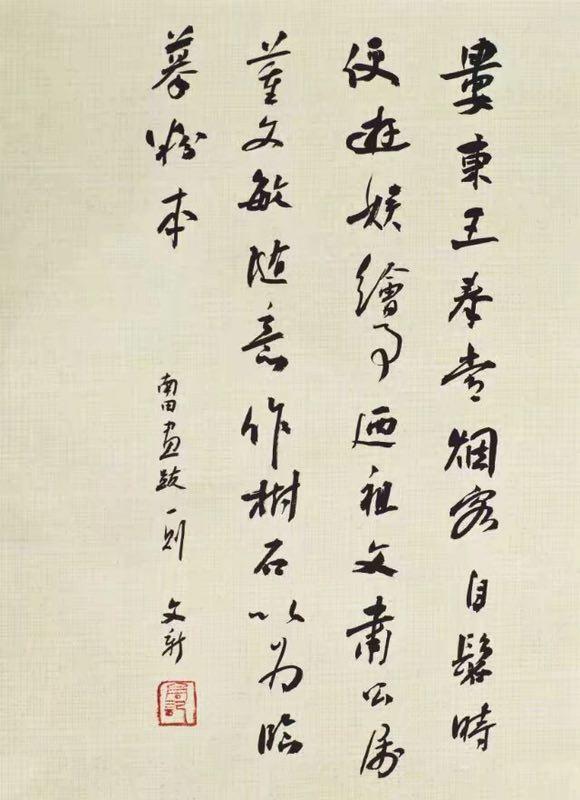 婁東王奉常煙客自髫時
便遊娛繪事迺祖文肅公属
董文敏随意作樹石以为臨
摹粉本
南田畫跋一則 文新